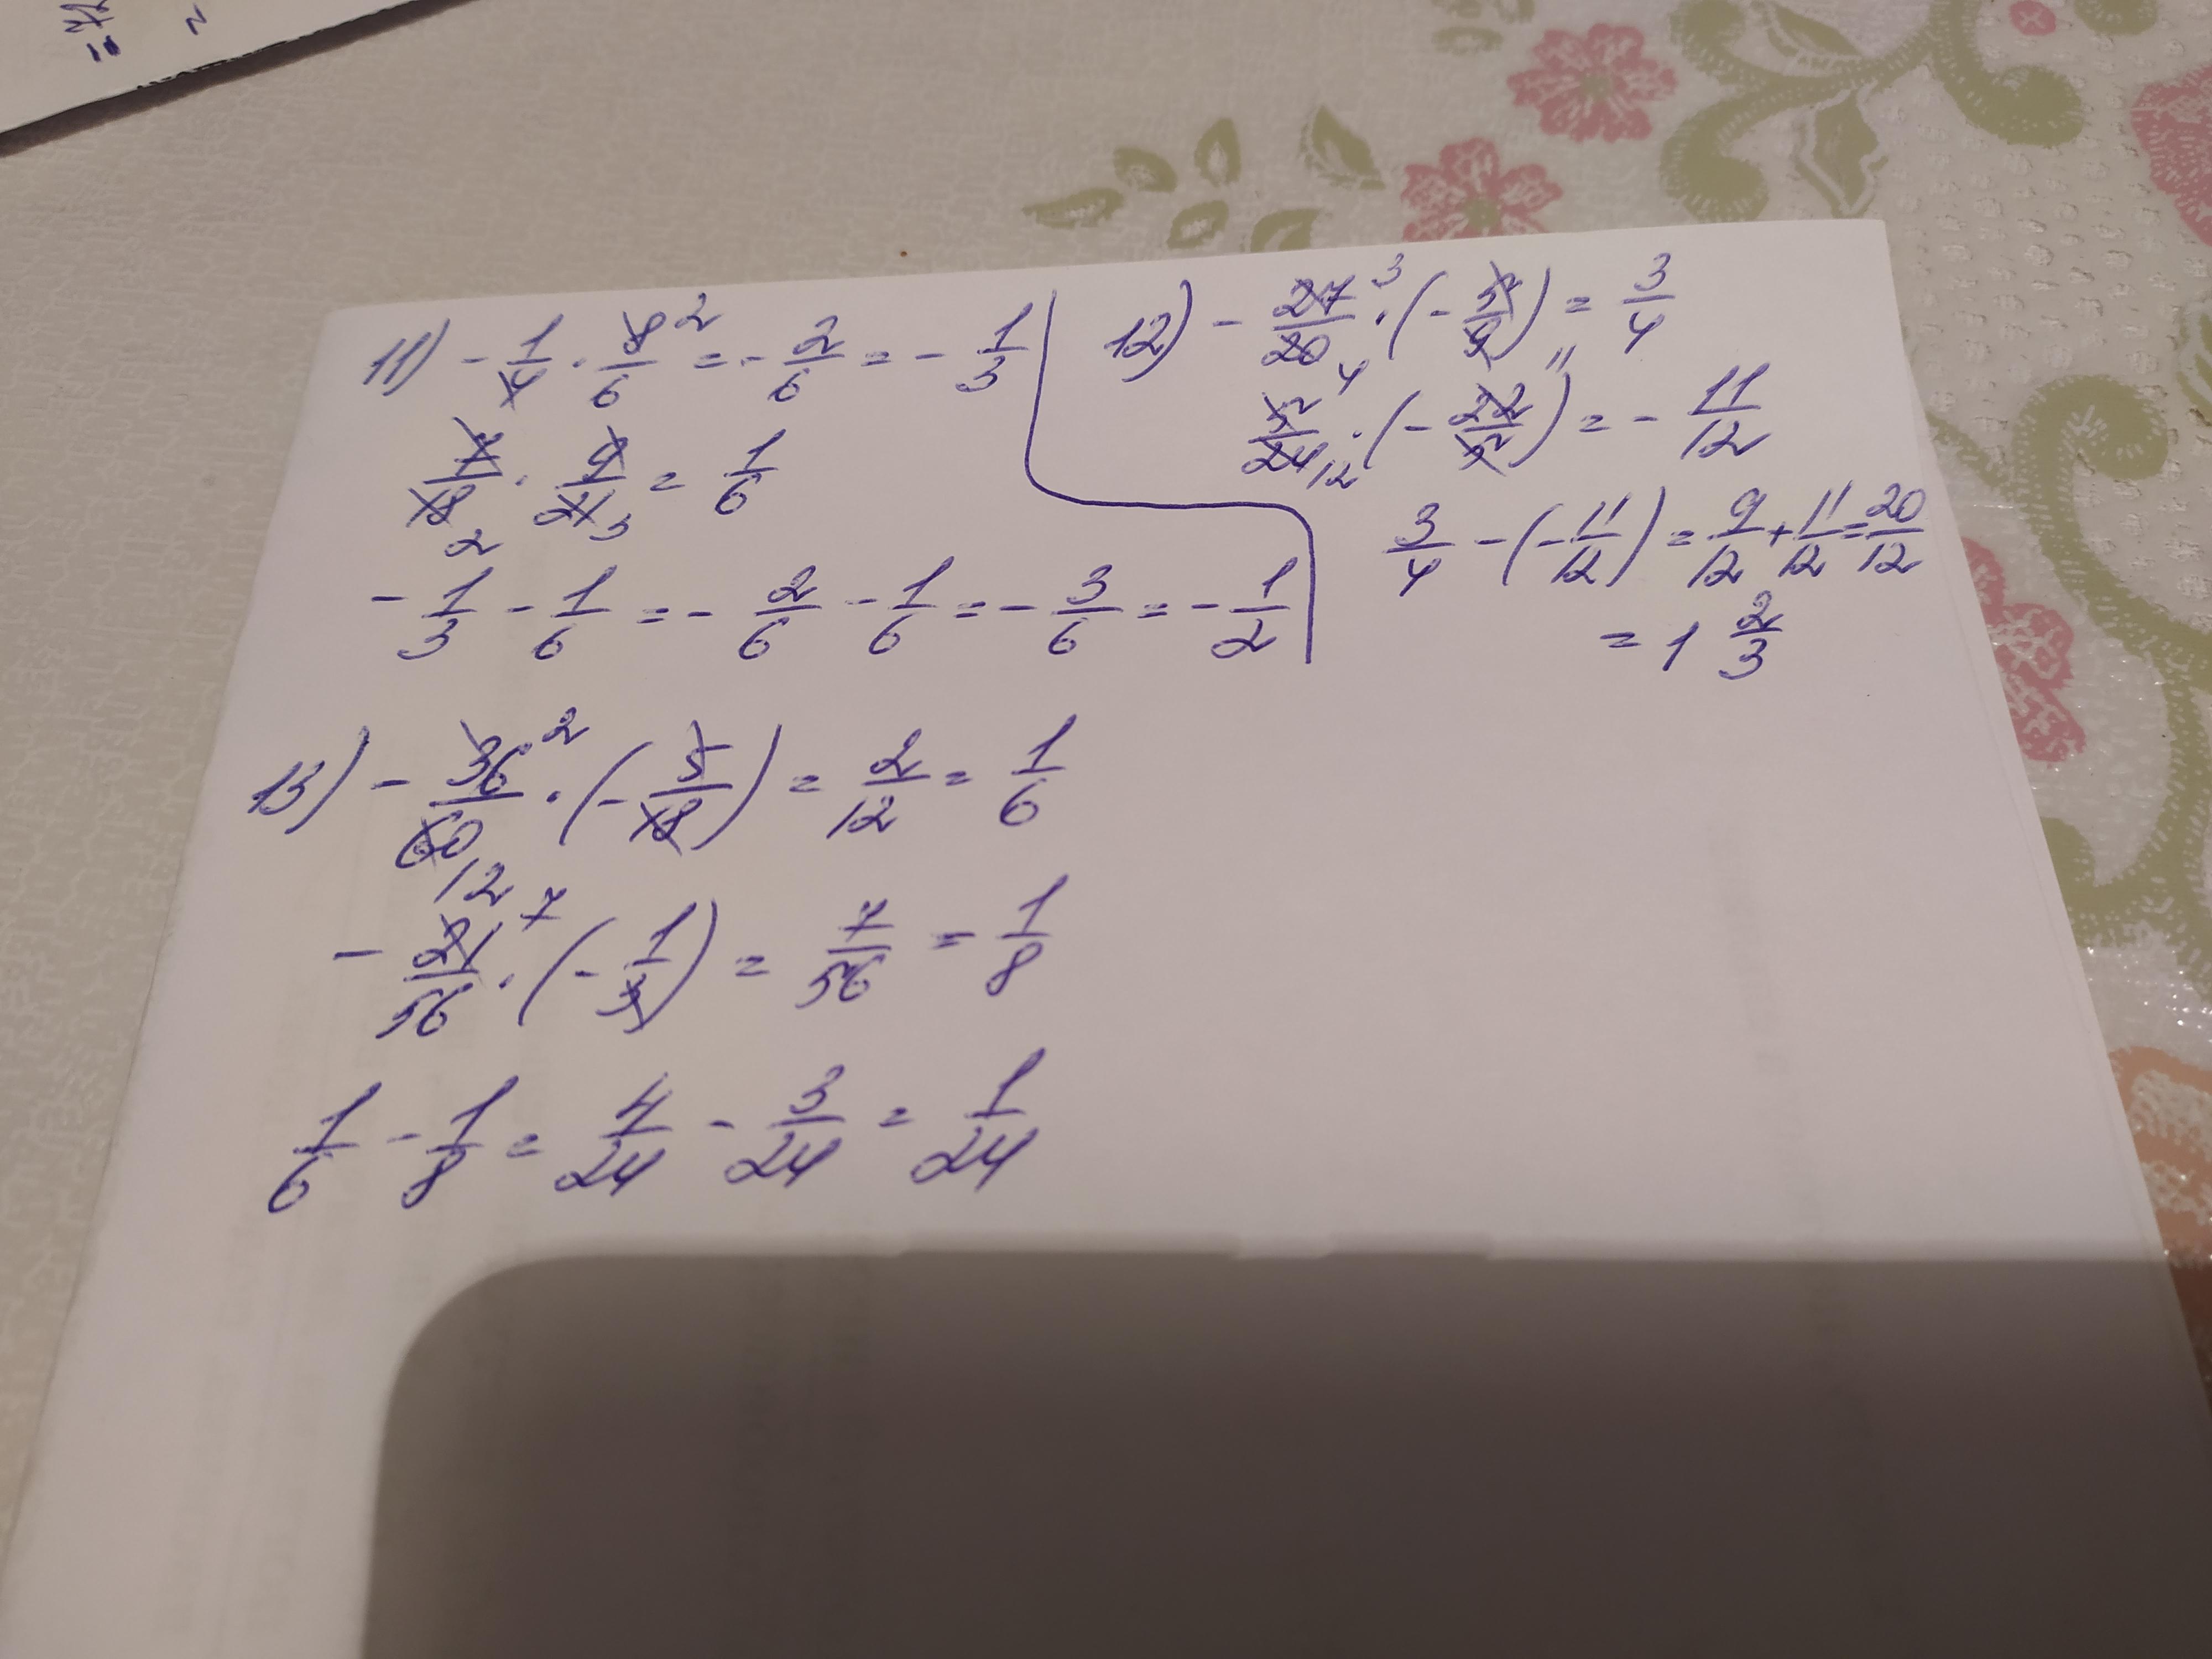 11) - 1/4 · 8/6 2 = - 2/6 = - 1/3
7/18 2 · 9/21 3 = 1/6
- 1/3 - 1/6 = - 2/6 - 1/6 = - 3/6 = - 1/2
12) - 27/20 3 4 · (- 5/9) = 3/4
5/24 12 · (- 22/5) 11 = - 11/12
3/4 - (- 11/12) = 9/12 + 11/12 = 20/12
= 1 2/3
13) - 36/60 2 12 · (- 5/18) = 2/12 = 1/6
- 21/56 7 · (- 1/3) = 7/56 = 1/8
1/6 - 1/8 = 4/24 - 3/24 = 1/24